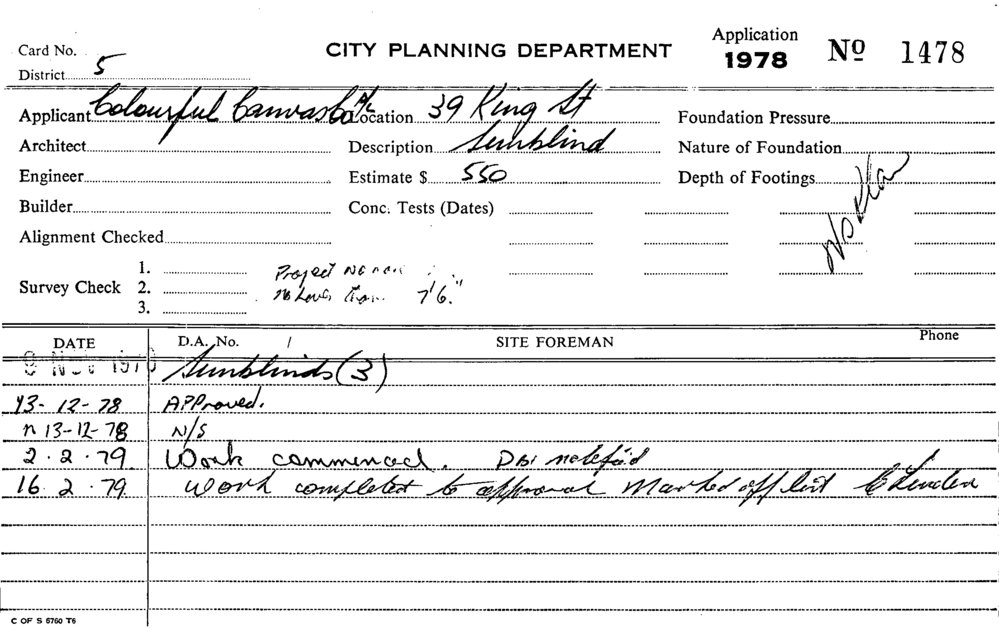 Application
Card No. CITY PLANNING DEPARTMENT 1978 Nº 1478
District 5
Applicant Colourful Canvas Co P/L Location 39 King St Foundation Pressure
Architect Description Sunblind Nature of Foundation
Engineer Estimate $ 550 Depth of Footings
Builder Conc. Tests (Dates)
No Plan
Alignment Checked
1.
Survey Check 2.
3.
Project
no lower than 7'6"
DATE D.A. No. / SITE FOREMAN Phone
9 NOV 1978 Sunblinds (3)
13-12-78 APProved.
n 13-12-78 N/S
2.2.79 Work commenced.
16.2.79. Work completed to approval Marked off list
C OF S 6760 T6